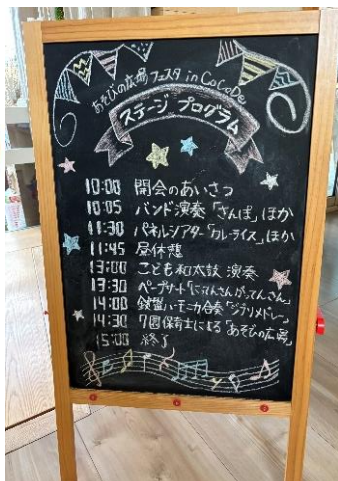 あそびの広場フェスタ in CoCoDe
ステージプログラム
10:00 開会のあいさつ
10:05 バンド演奏「さんぽ」ほか
11:30 パネルシアター「カレーライス」ほか
11:45 昼休憩
13:00 こども和太鼓 演奏
13:30 ペープサート「にてんさんがってんさん」
14:00 鍵盤ハーモニカ合奏「ジブリメドレー」
14:30 7園保育士による「あそびの広場」
15:00 終了